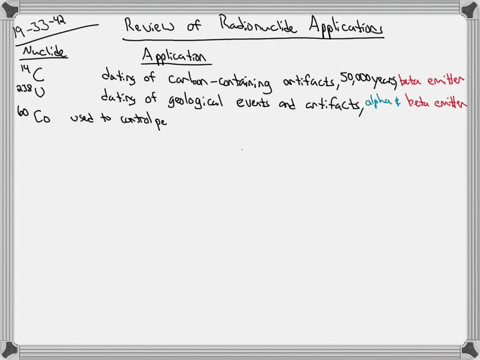 19-33-42
Review of Radionuclide Applications
Nuclide Application
¹⁴C dating of carbon-containing artifacts, 50,000 years, beta emitter
²³⁸U dating of geological events and artifacts, alpha & beta emitter
⁶⁰Co used to control pe